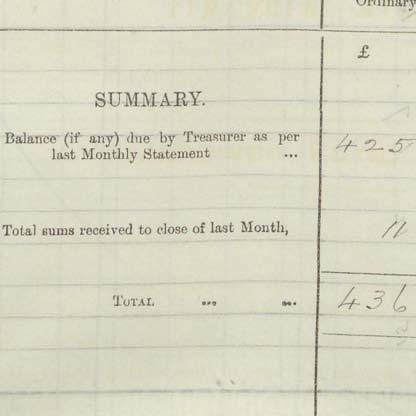 Ordinary
£
SUMMARY.
Balance (if any) due by Treasurer as per
last Monthly Statement ... 425
Total sums received to close of last Month, 11
TOTAL ... ... 436